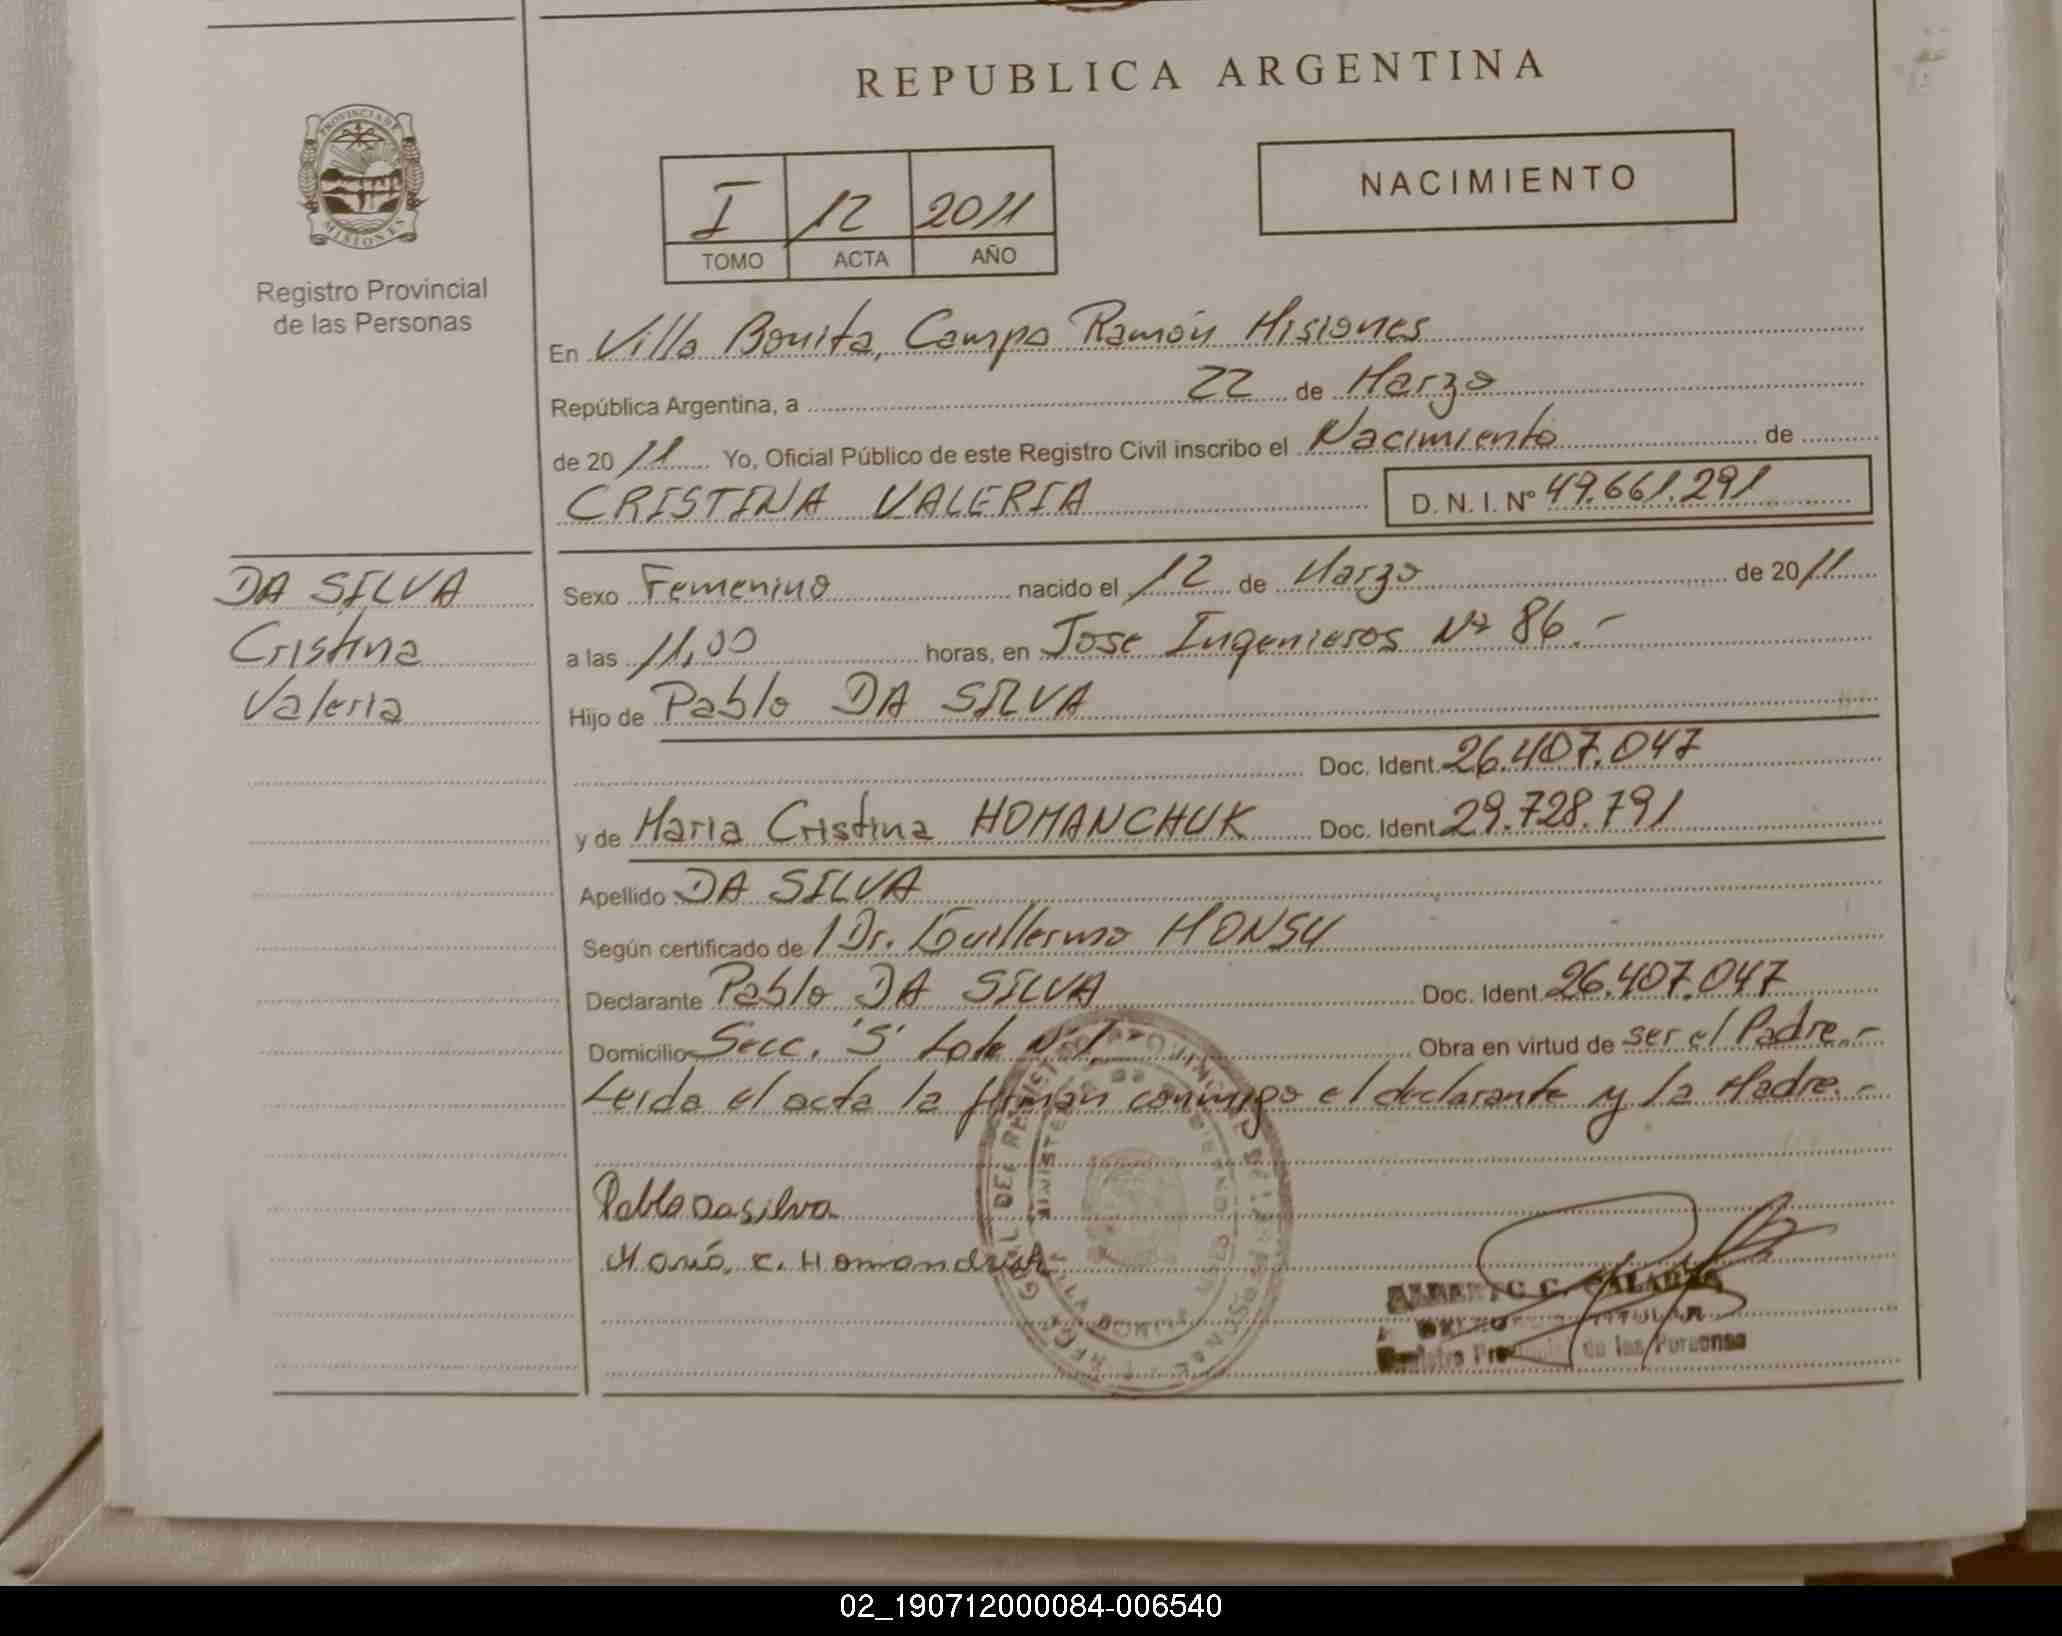 REPUBLICA ARGENTINA
PROVINCIA DE MISIONES
Registro Provincial
de las Personas
I 12 2011
TOMO ACTA AÑO
NACIMIENTO
En Villa Bonita, Campo Ramón Misiones
República Argentina, a 22 de Marzo
de 2011 Yo, Oficial Público de este Registro Civil inscribo el Nacimiento de
CRISTINA VALERIA D. N. I. Nº 49.661.291
DA SILVA
Cristina
Valeria
Sexo Femenino nacido el 12 de Marzo de 2011
a las 11,00 horas, en Jose Ingenieros Nº 86.-
Hijo de Pablo DA SILVA
Doc. Ident. 26.407.047
y de Maria Cristina HOMANCHUK Doc. Ident. 29.728.791
Apellido DA SILVA
Según certificado de Dr. Guillermo
Declarante Pablo DA SILVA Doc. Ident. 26.407.047
Domicilio Secc. 'S' Lote Nº 1 Obra en virtud de ser el Padre.-
Leida el acta la firman conmigo el declarante y la Madre.-
Pablo Da silva
María. C. Homanchuk
TITULAR
Registro Provincial de las Personas
02_190712000084-006540